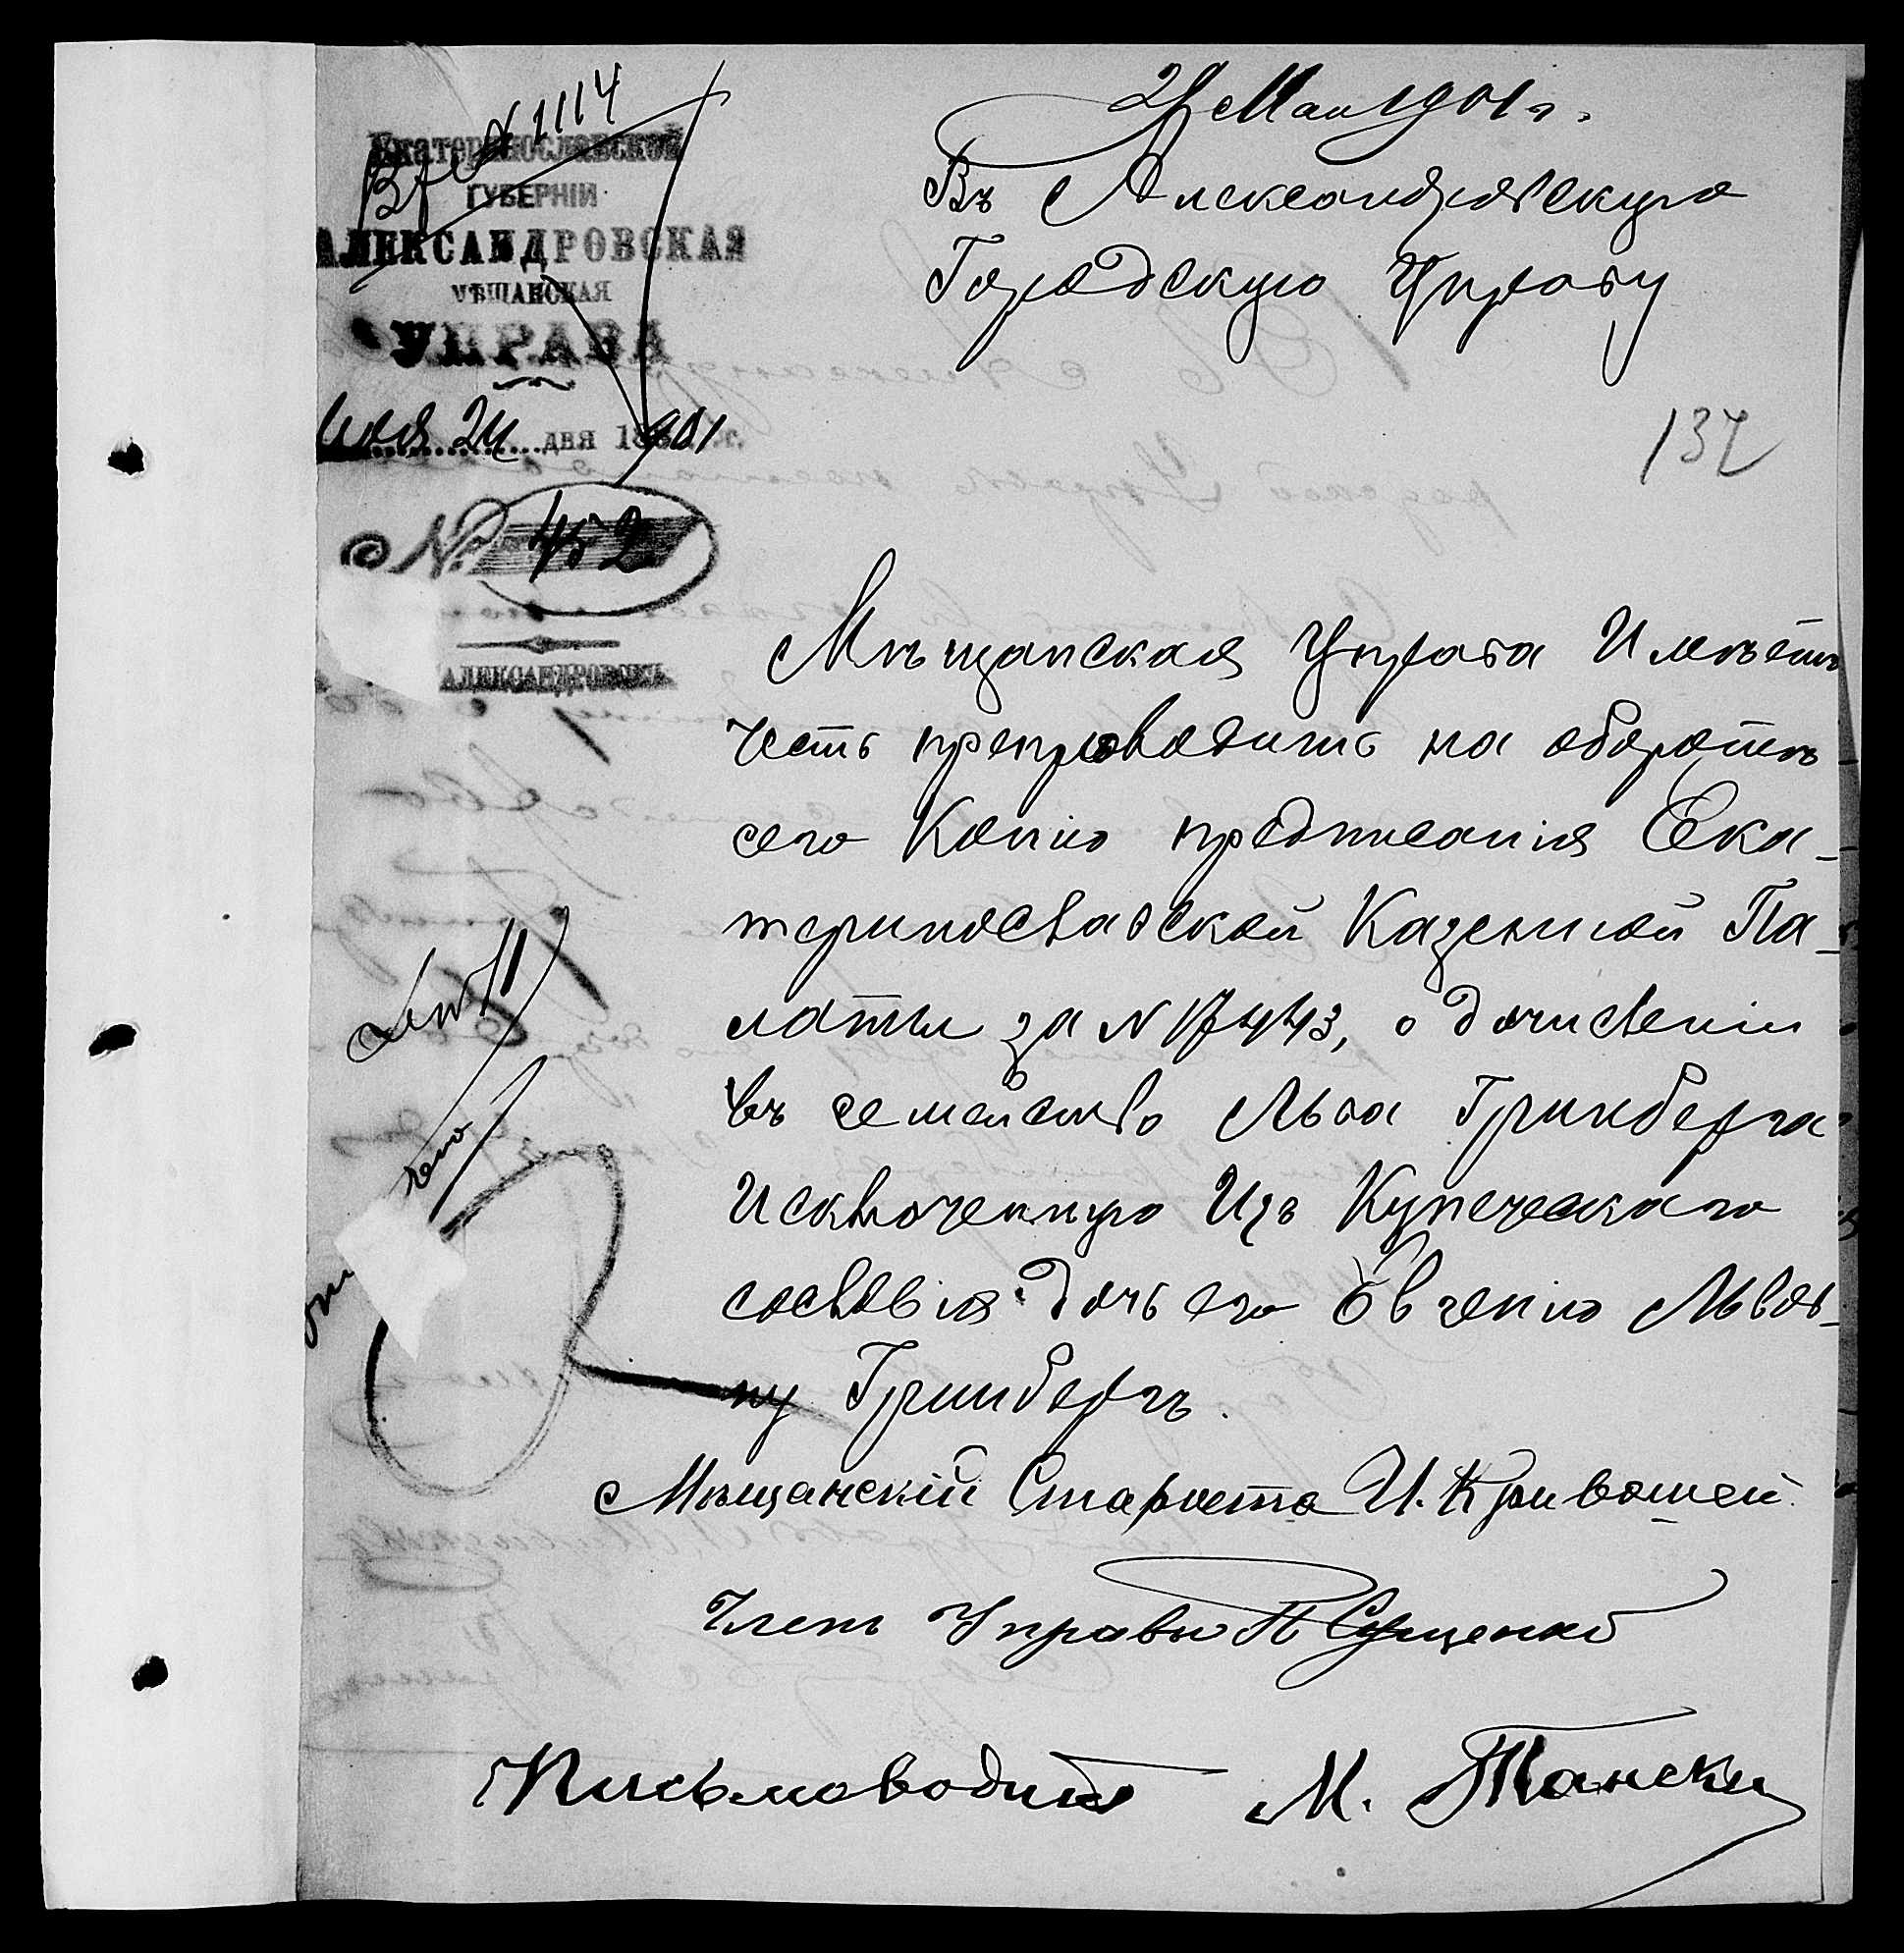 В № 1114
Екатеринославской
ГУБЕРНІИ
АЛЕКСАНДРОВСКАЯ
МѢЩАНСКАЯ
УПРАВА
Мая 24 дня 1901 г.
№ 452
АЛЕКСАНДРОВСКЪ
Мая 1901 г.
Въ Александровскую
Городскую Управу
137
Мѣщанская Управа Имѣетъ
честь препроводить на оборотѣ
сего Копію предписанія Ека-
теринославской Казенной Па-
латы за N 17443, о дочисленіи
въ семейство Льва Гринберга
Исключенную Изъ Купеческаго
сословія дочь его Евгенію Львов-
ну Гринбергъ.
Мѣщанскій Староста И. Кривошей.
Членъ Управы П Сущенко
Письмоводитель М. Тански